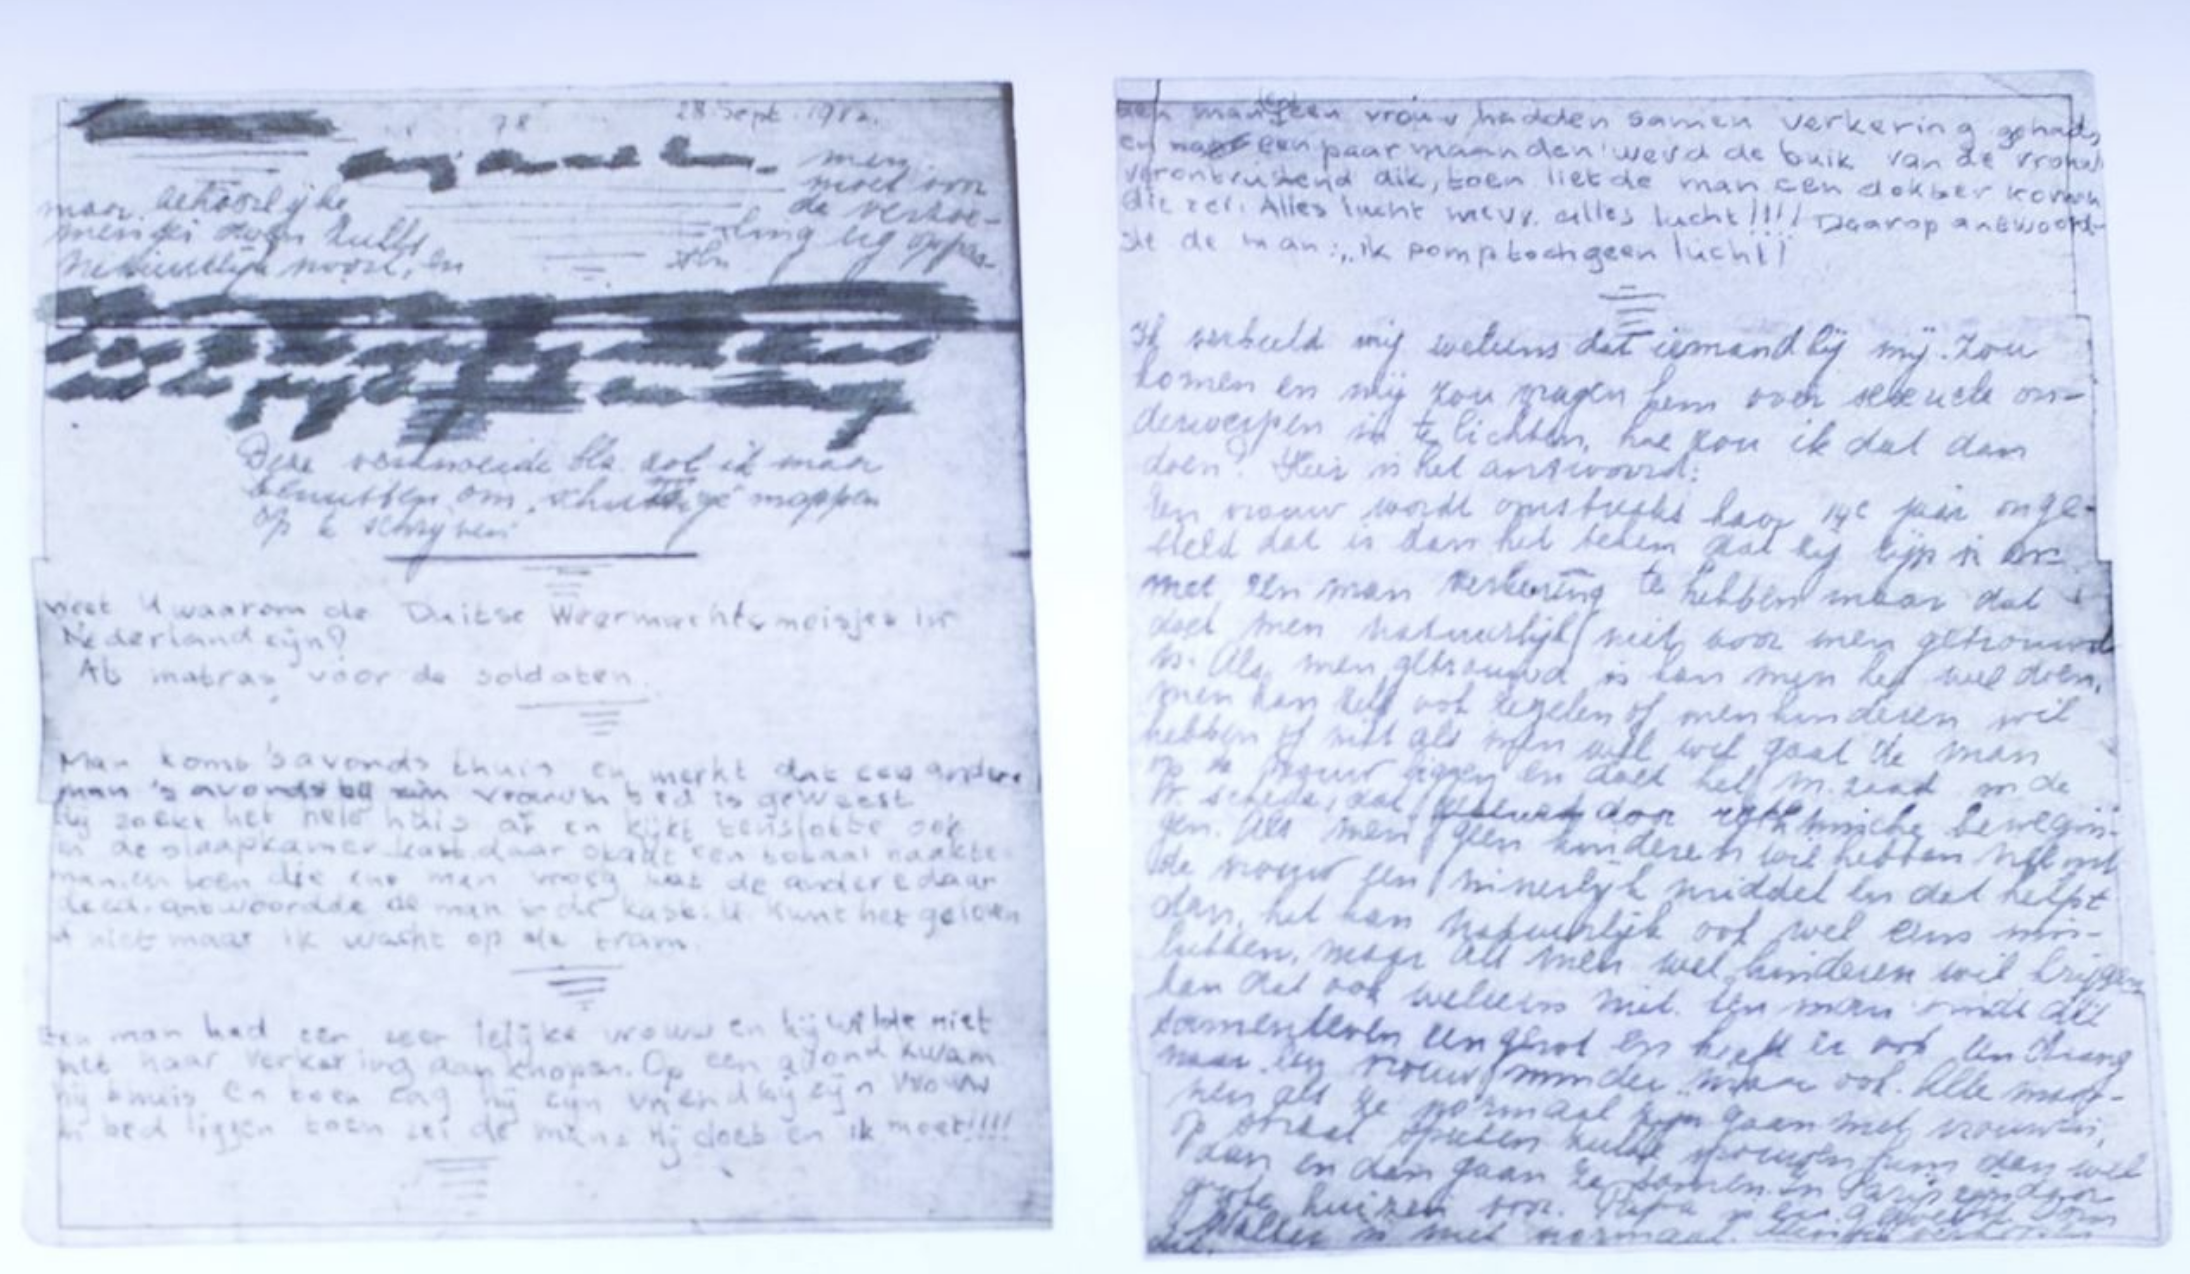 78 28 Sept. 1942.
men
moet voor
maar behoorlijke de verhou-
mensen doen zulks ding erg oppas-
natuurlijk nooit, en
Deze bla zal ik maar
benutten om „schuttige" moppen
op te schrijven
Weet U waarom de Duitse Weermachtsmeisjes in
Nederland zijn?
Als matras voor de soldaten.
Man komt 's avonds thuis en merkt dat een andere
man 's avonds bij zijn vrouw in bed is geweest
Hij zoekt het hele huis af en kijkt tenslotte ook
in de slaapkamer kast daar staat een totaal naakte
man, en toen die ene man vroeg wat de andere daar
deed, antwoordde de man in de kast: U kunt het geloven
of niet maar ik wacht op de tram.
Een man had een zeer lelijke vrouw en hij wilde niet
met haar verkering aanknopen. Op een avond kwam
hij thuis en toen zag hij zijn vriend bij zijn vrouw
in bed liggen toen zei de man: Hij doet en ik moet!!!!
een man en een vrouw hadden samen verkering gehad,
en na een paar maanden werd de buik van de vrouw
verontrustend dik, toen liet de man een dokter komen
die zei: Alles lucht mevr. alles lucht!!!! Daarop antwoord-
de de man: „ik pomp toch geen lucht!
Ik verbeeld mij weleens dat iemand bij mij zou
komen en mij zou vragen hem over sexuele on-
derwerpen in te lichten, hoe zou ik dat dan
doen? Hier is het antwoord:
Een vrouw wordt omstreeks haar 14e jaar onge-
steld dat is dan het teken dat zij rijp is om
met een man verkering te hebben maar dat
doet men natuurlijk niet voor men getrouwd
is. Als men getrouwd is kan men het wel doen,
men kan zelf ook regelen of men kinderen wil
hebben of niet als men wel wil gaat de man
op de vrouw liggen en doet het m. zaad in de
v. schede, dat gebeurt door rythmische bewegin-
gen. Als men geen kinderen wil hebben neemt
de vrouw een innerlijk middel en dat helpt
dan, het kan natuurlijk ook wel eens mis-
lukken, maar als men wel kinderen wil krijgen
kan dat ook weleens niet. Een man vindt dit
samenleven een genot en heeft er ook een drang
naar een vrouw minder maar ook. Alle man-
nen als ze normaal zijn gaan met vrouwen,
op straat spreken zulke vrouwen hun dan wel
aan en dan gaan ze samen. In Parijs zijn daar
grote huizen voor. Papa is er geweest. Oom
Walter is niet normaal.